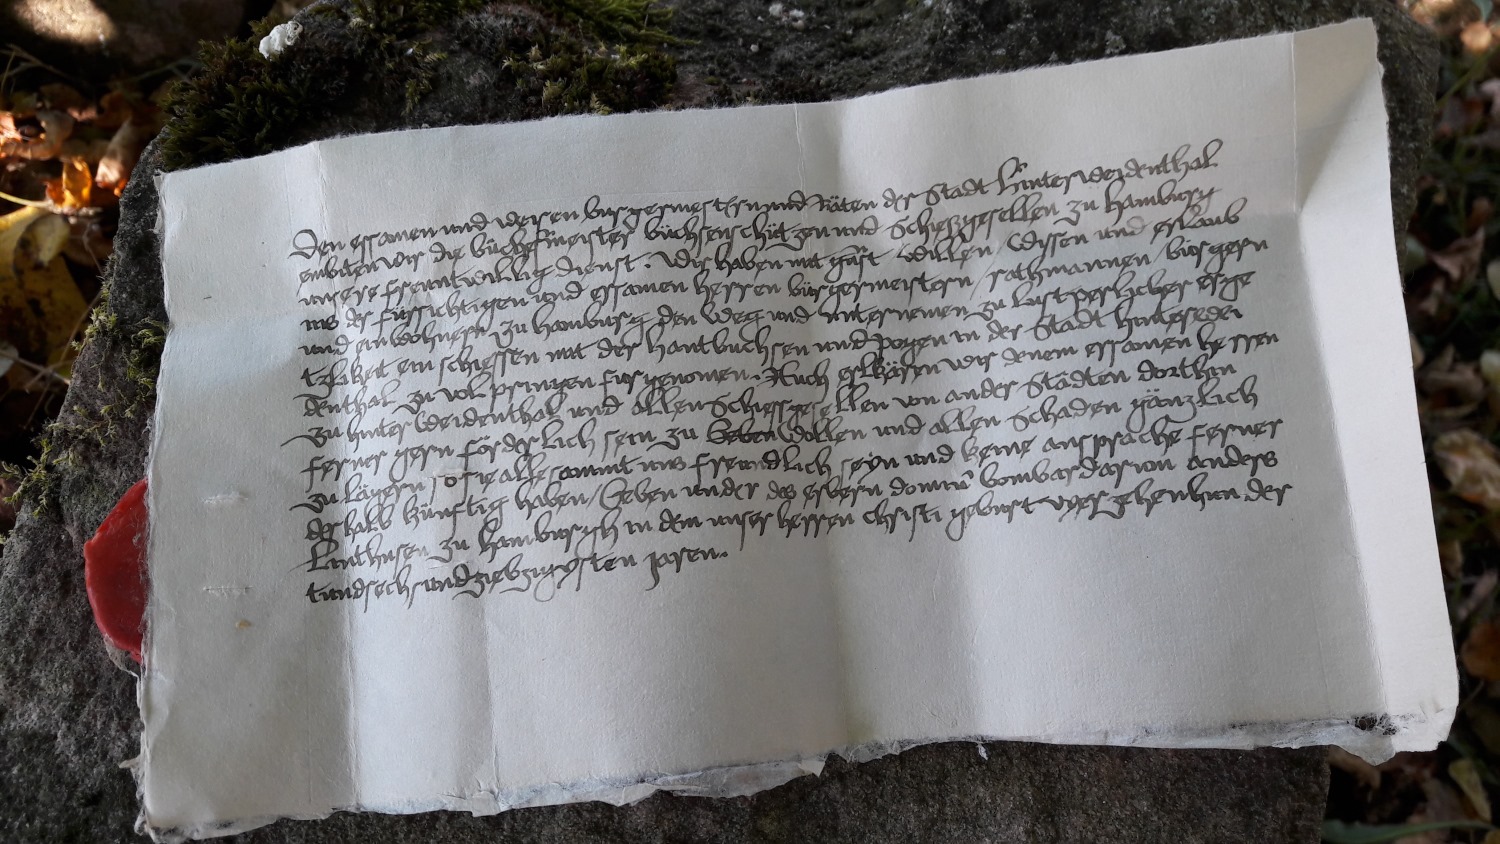 Den ersamen und weisen burgermestern und Räten der Stadt hinterweidenthal
enbiten wir die büchsenmeister büchsenschützen und Schieszgesellen zu hamburg
unsere freuntwillig dienst. Wir haben mit gunst / Willen / Wissen und erlaub
nis der fursichtigen und ersamen herren bürgermeistern / rathmannen / bürgern
und einwohnern zu hamburg den weg und unternemen zu lustperlicher erge
tzlikeit ein schiessen mit der hantbuchsen und pogen in der Stadt hinterwei
denthal zu volpringen furgenomen. Auch erklären wir denen ersamen herren
zu hinterweidenthal und allen Schiessgesellen von ander Städten dorthin
ferner gern förderlich sein zu wollen und allen schaden gänzlich
zu lägern so sie alle sammt uns freundlich seyn und keine ansprache ferner
deshalb künftig haben / Geben under des erbern bombardarum anders
zu hamburgh in dem unser herren christi geburt vyerzehenhun der
tundsechsundziebzigysten jaren.